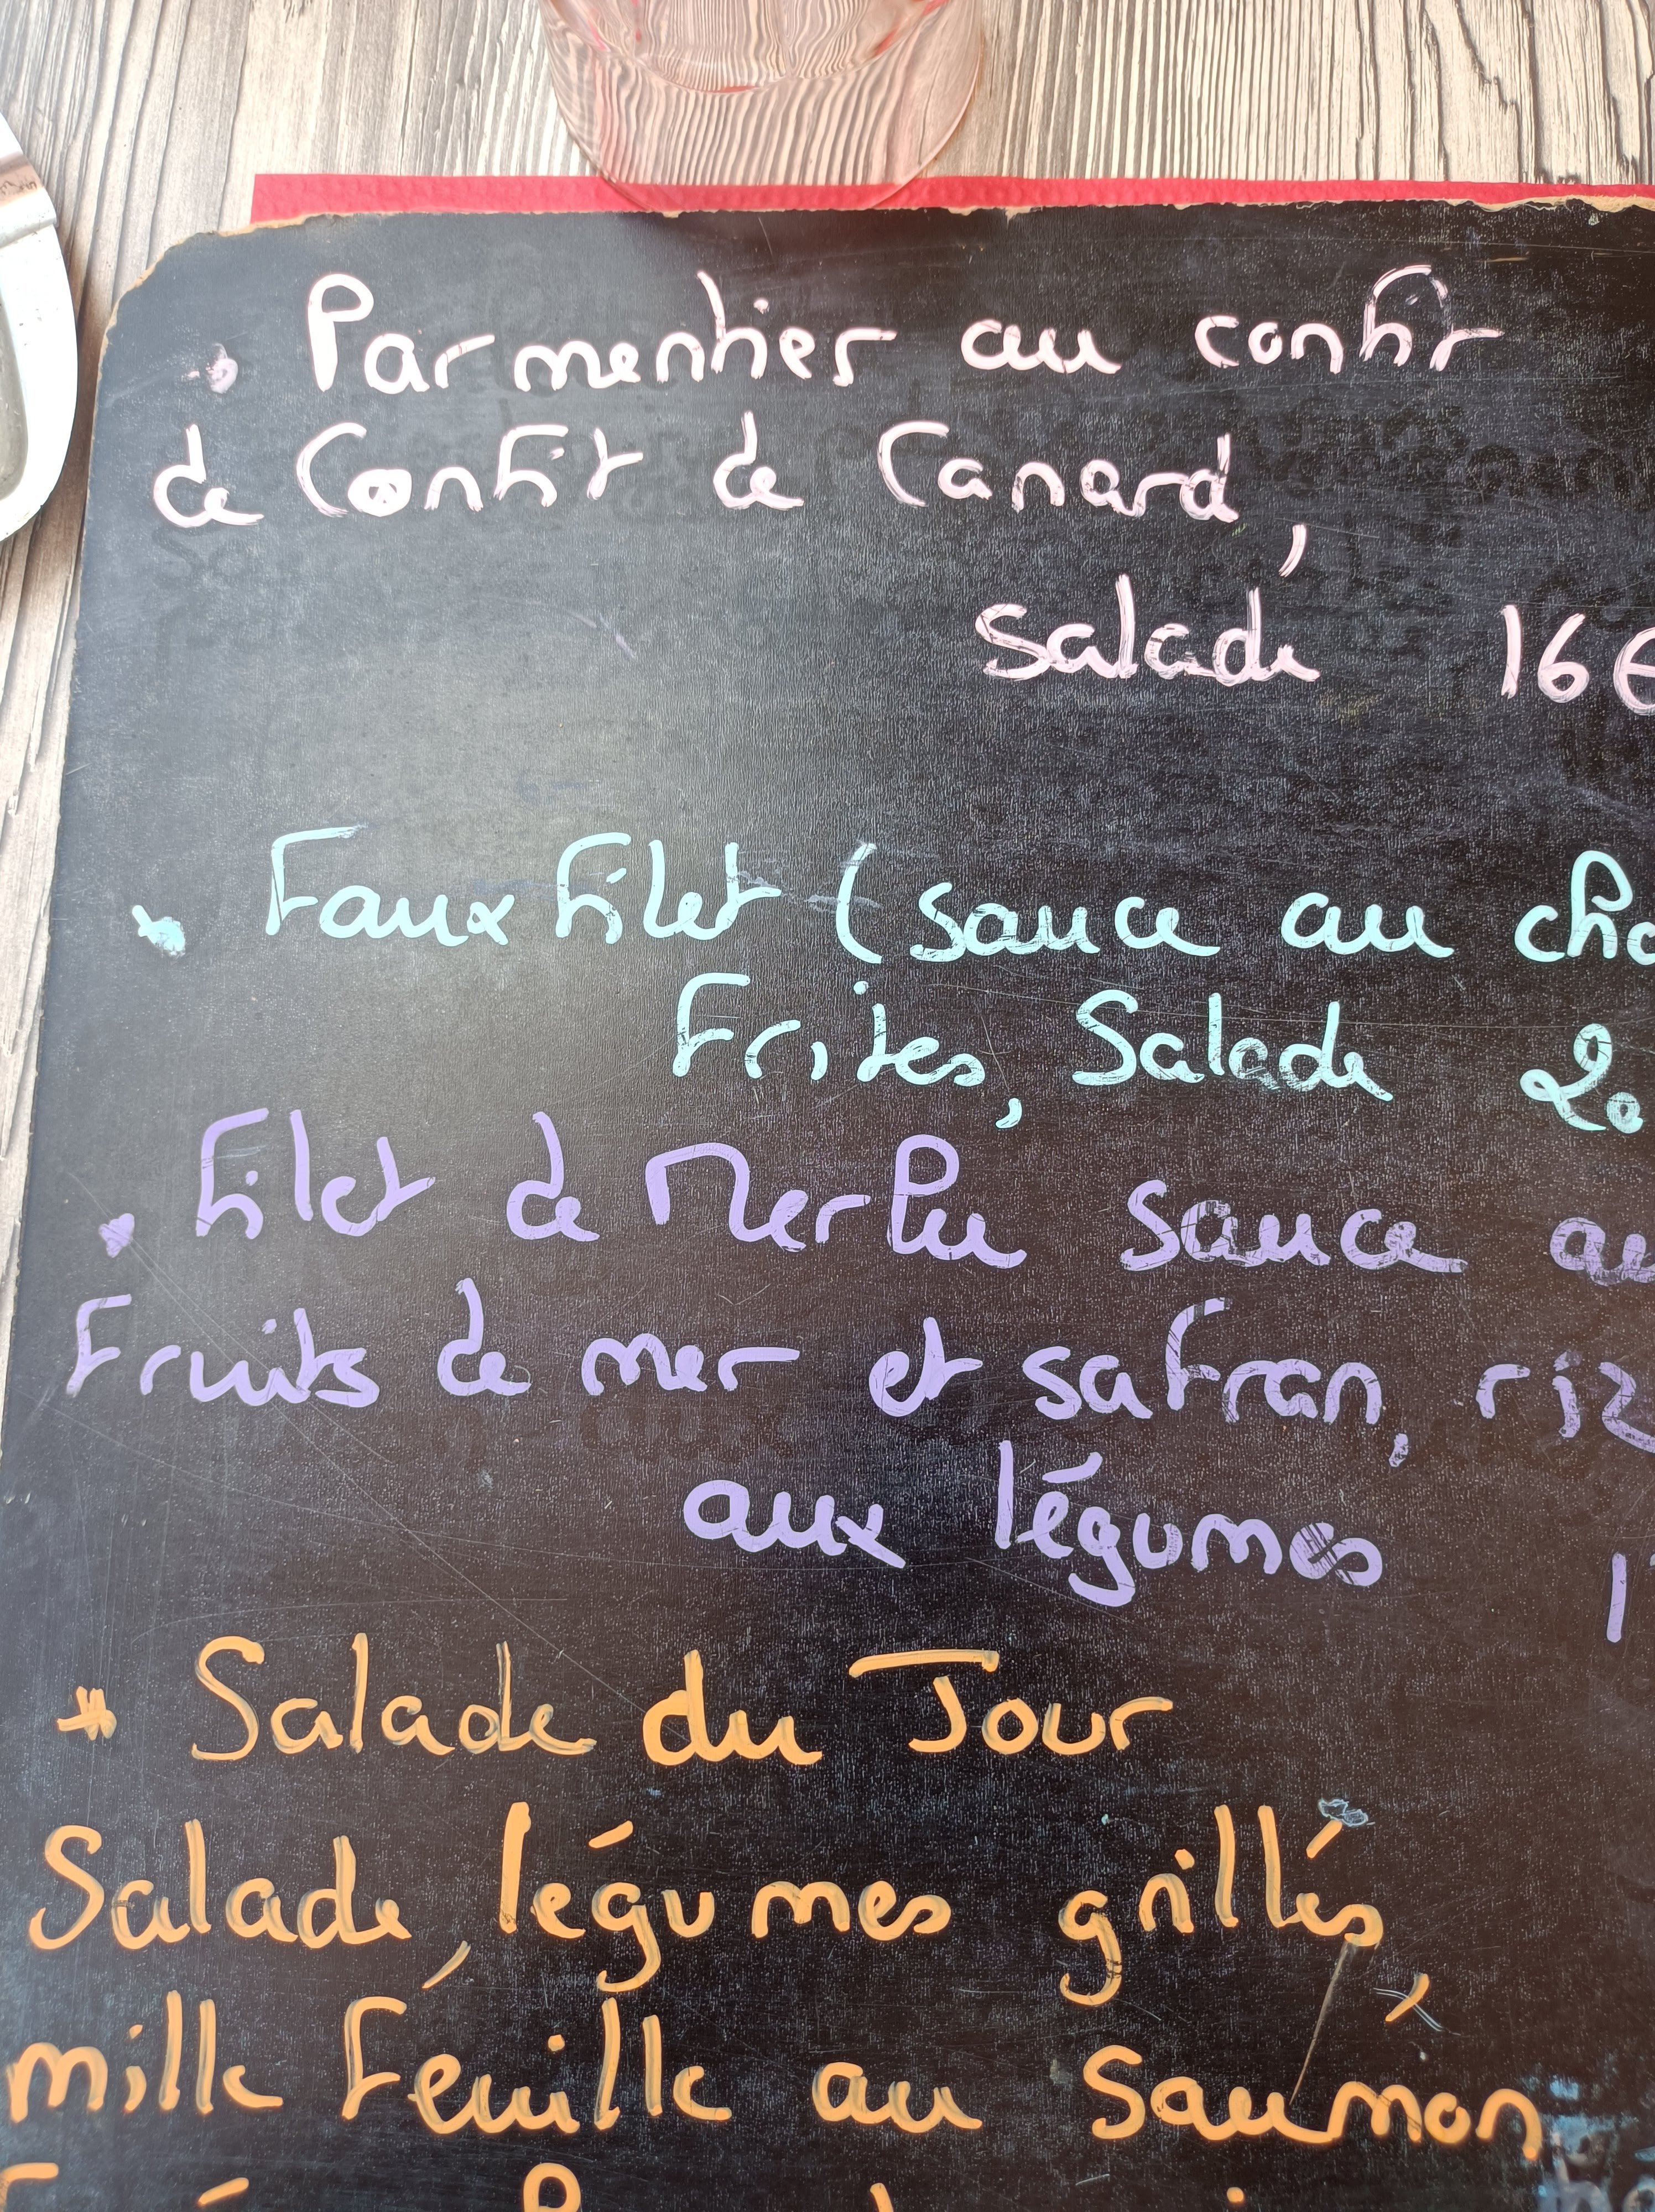 Parmentier au confit
de Confit de Canard,
Salade 16€
Faux Filet (sauce au cho
Frites, Salade 20
Filet de Merlu sauce au
Fruits de mer et safran, riz
aux légumes
* Salade du Jour
Salade, légumes grillés,
mille Feuille au Saumon